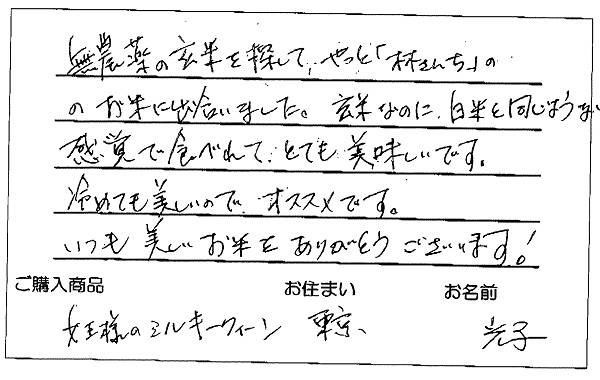 無農薬の玄米を探して、やっと「林さんち」の
のお米に出会いました。玄米なのに、白米と同じような
感覚で食べれて、とても美味しいです。
冷めても美しいので、オススメです。
いつも美しいお米をありがとうございます!
ご購入商品 お住まい お名前
女王様のミルキークィーン 東京、 光子